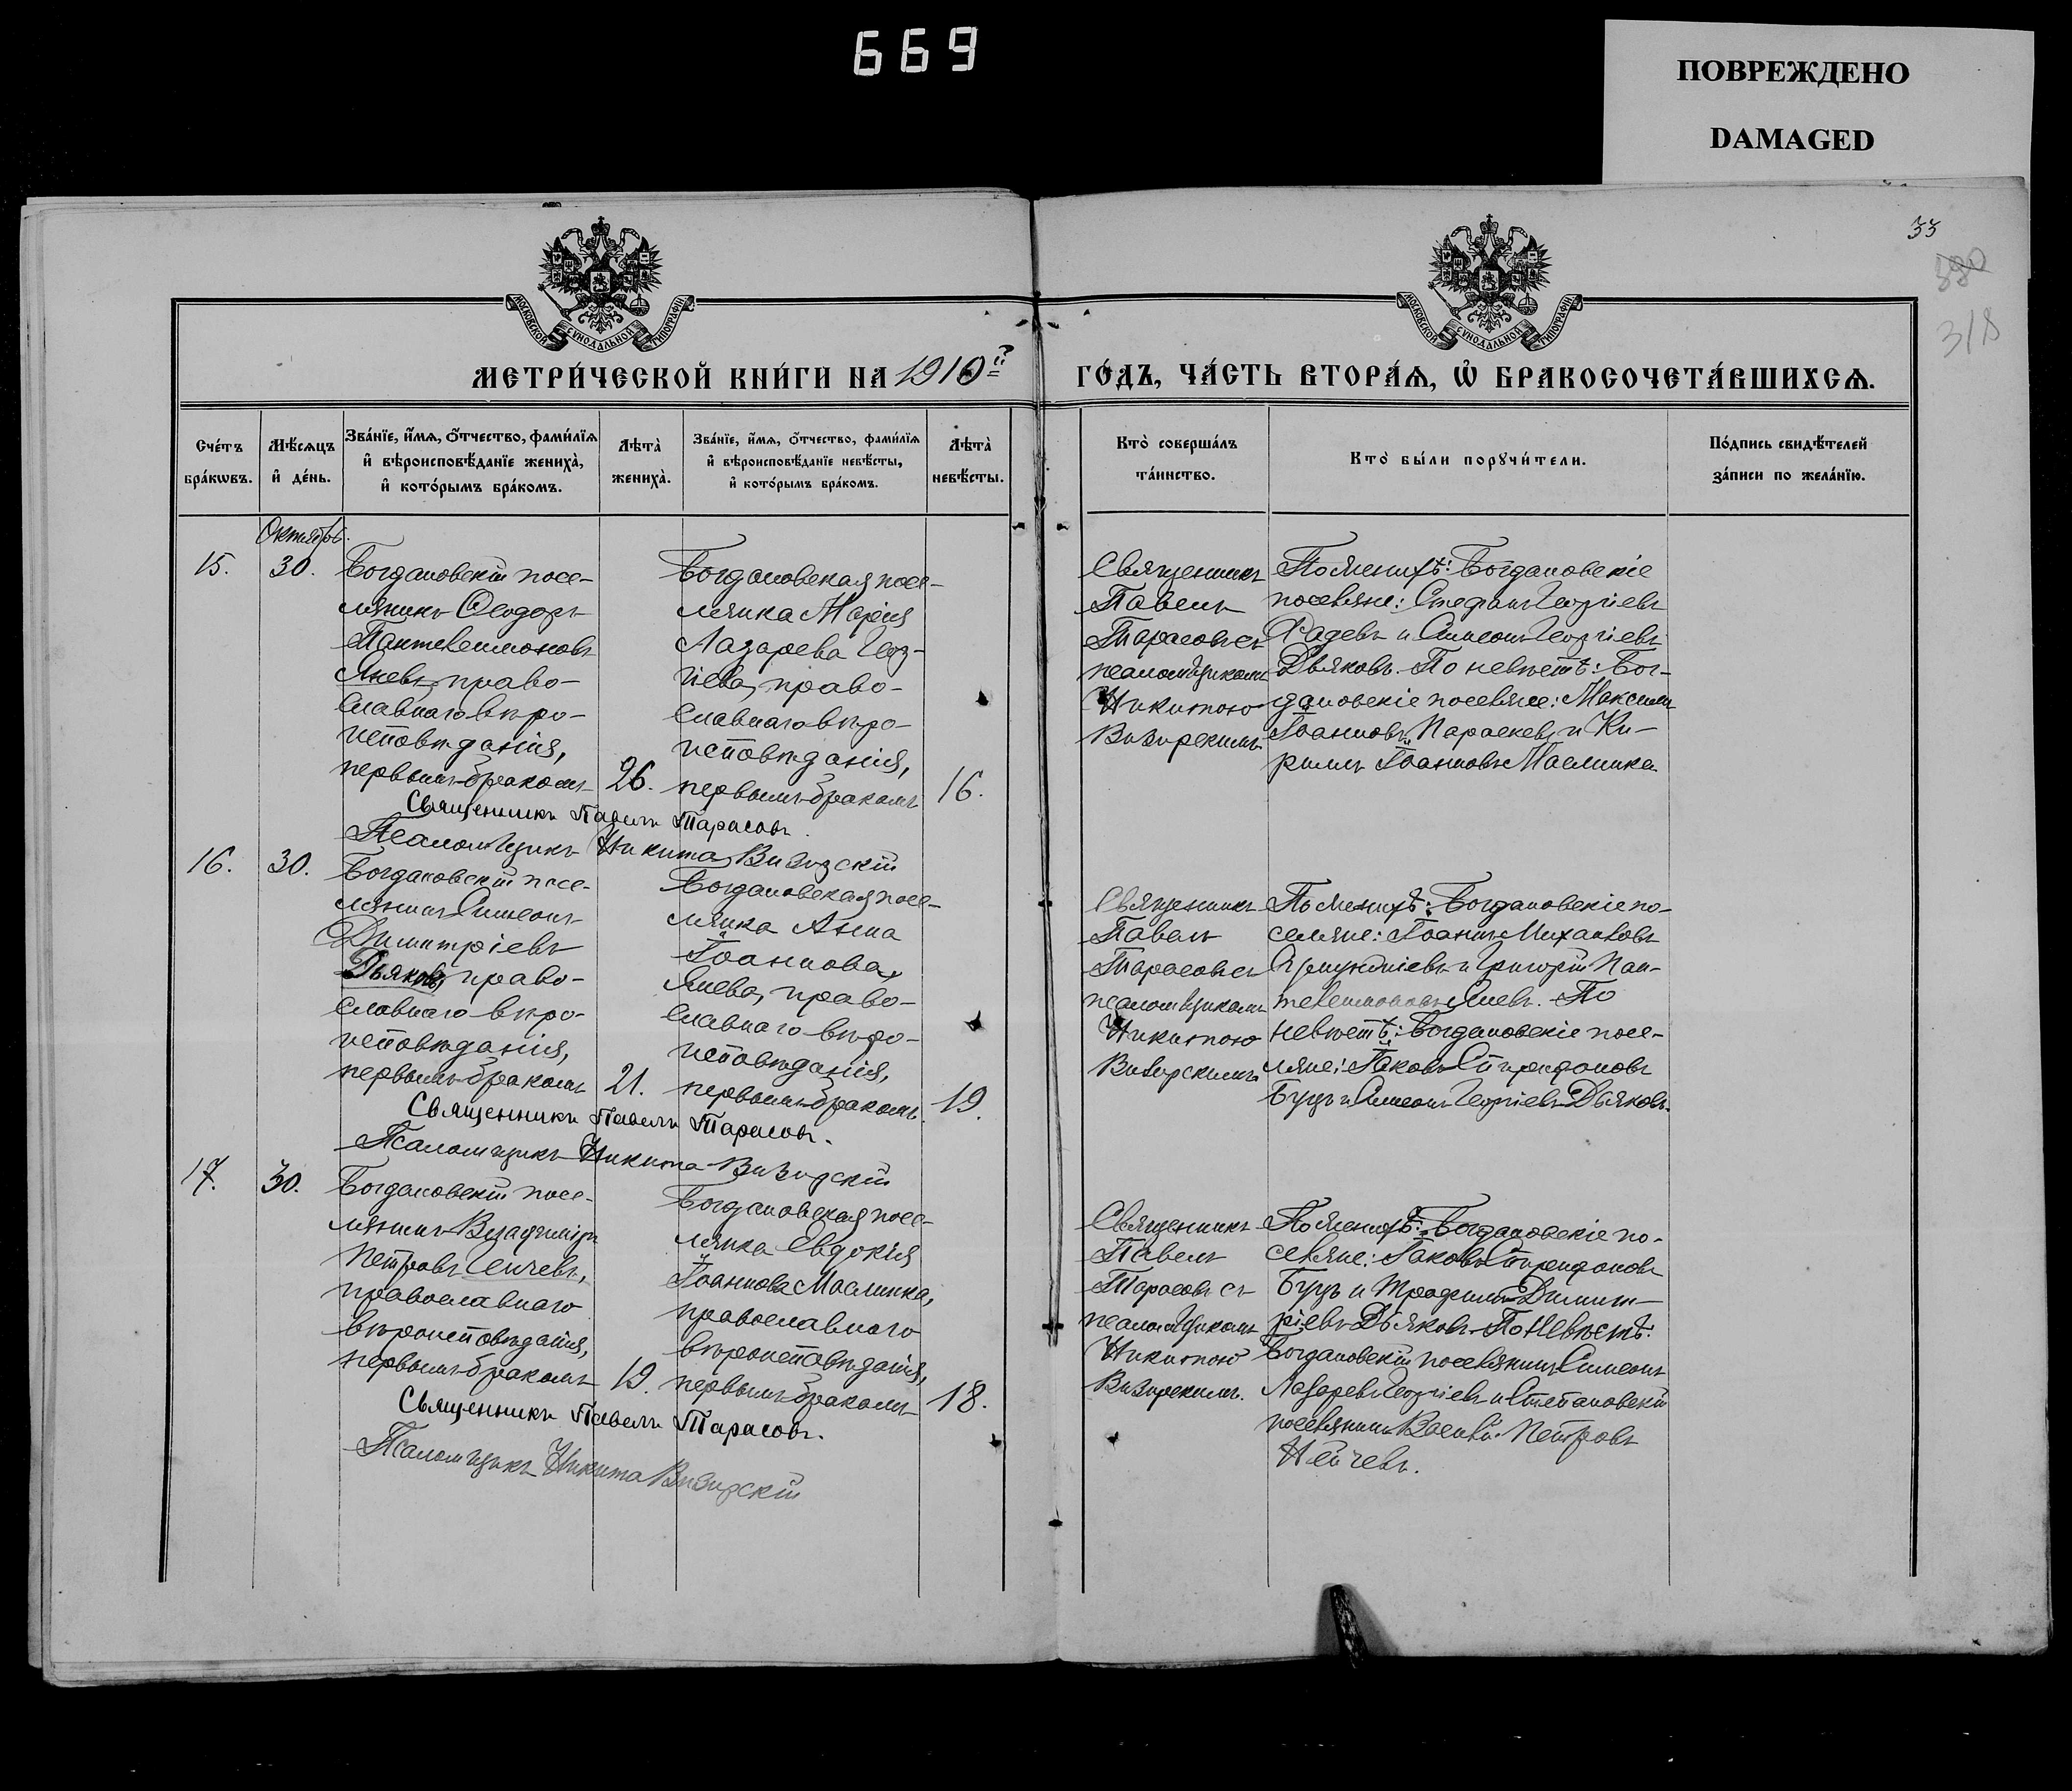 669
ПОВРЕЖДЕНО
DAMAGED
33
380
318
МОСКОВСКОЙ СУНОДАЛЬНОЙ ТИПОГРАФІИ
МОСКОВСКОЙ СУНОДАЛЬНОЙ ТИПОГРАФІИ
МЕТРИ́ЧЕСКОЙ КНИ́ГИ НА 1910й
ГО́ДЪ, ЧА́СТЬ ВТОРА́Ѧ, Ѡ҆ БРАКОСОЧЕТА́ВШИХСѦ.
Сче́тъ
бра́кѡвъ.
Мѣ́сѧцъ
и҆ де́нь.
Зва́нїе, и҆́мѧ, ѻ҆́тчество, фами́лїѧ
и҆ вѣроисповѣ́данїе жениха̀,
и҆ кото́рымъ бра́комъ.
Лѣта̀
жениха̀.
Зва́нїе, и҆́мѧ, ѻ҆́тчество, фами́лїѧ
и҆ вѣроисповѣ́данїе невѣ́сты,
и҆ кото́рымъ бра́комъ.
Лѣта̀
невѣ́сты.
Кто̀ соверша́лъ
та́инство.
Кто̀ бы́ли порꙋчи́тели.
По́дпись свидѣ́телей
за́писи по жела́нїю.
Октябрь.
15.
30.
Богдановскій посе-
лянинъ Ѳеодоръ
Пантелеимоновъ
Яневъ, право-
славнаго вѣро-
исповѣданія,
первымъ бракомъ
26.
Богдановская посе-
лянка Марія
Лазарева Геор-
гіева, право-
славнаго вѣро-
исповѣданія,
первымъ бракомъ
16.
Священникъ
Павелъ
Тарасовъ съ
псаломщикомъ
Никитою
Визирскимъ
По женихѣ: Богдановскіе
поселяне: Стефанъ Георгіевъ
Радевъ и Симеонъ Георгіевъ
Дьяковъ. По невѣстѣ: Бог-
дановскіе поселяне: Максимъ
Іоанновъ Параскевъ и Ки-
риллъ Іоанновъ Маслинка.
Священникъ Павелъ Тарасовъ.
Псаломщикъ Никита Визирскій
16.
30.
Богдановскій посе-
лянинъ Симеонъ
Димитріевъ
Дьяковъ, право-
славнаго вѣро-
исповѣданія,
первымъ бракомъ
21.
Богдановская посе-
лянка Анна
Іоаннова
Янева, право-
славнаго вѣро-
исповѣданія,
первымъ бракомъ
19.
Священникъ
Павелъ
Тарасовъ съ
псаломщикомъ
Никитою
Визирскимъ
По женихѣ: Богдановскіе по-
селяне: Іоаннъ Михаиловъ
и Григорій Пан-
телеимоновъ Яневъ. По
невѣстѣ: Богдановскіе посе-
ляне: Іаковъ Спиридоновъ
Буцъ и Симеонъ Георгіевъ Дьяковъ.
Священникъ Павелъ Тарасовъ.
Псаломщикъ Никита Визирскій
17.
30.
Богдановскій посе-
лянинъ Владиміръ
Петровъ Генчевъ,
православнаго
вѣроисповѣданія,
первымъ бракомъ
19.
Богдановская посе-
лянка Евдокія
Іоаннова Маслинка,
православнаго
вѣроисповѣданія,
первымъ бракомъ
18.
Священникъ
Павелъ
Тарасовъ съ
псаломщикомъ
Никитою
Визирскимъ.
По женихѣ: Богдановскіе по-
селяне: Іаковъ Спиридоновъ
Буцъ и Трофимъ Димит-
ріевъ Дьяковъ. По невѣстѣ:
Богдановскій поселянинъ Симеонъ
Лазаревъ Георгіевъ и Степановскій
поселянинъ Василій Петровъ
Нейчевъ.
Священникъ Павелъ Тарасовъ.
Псаломщикъ Никита Визирскій